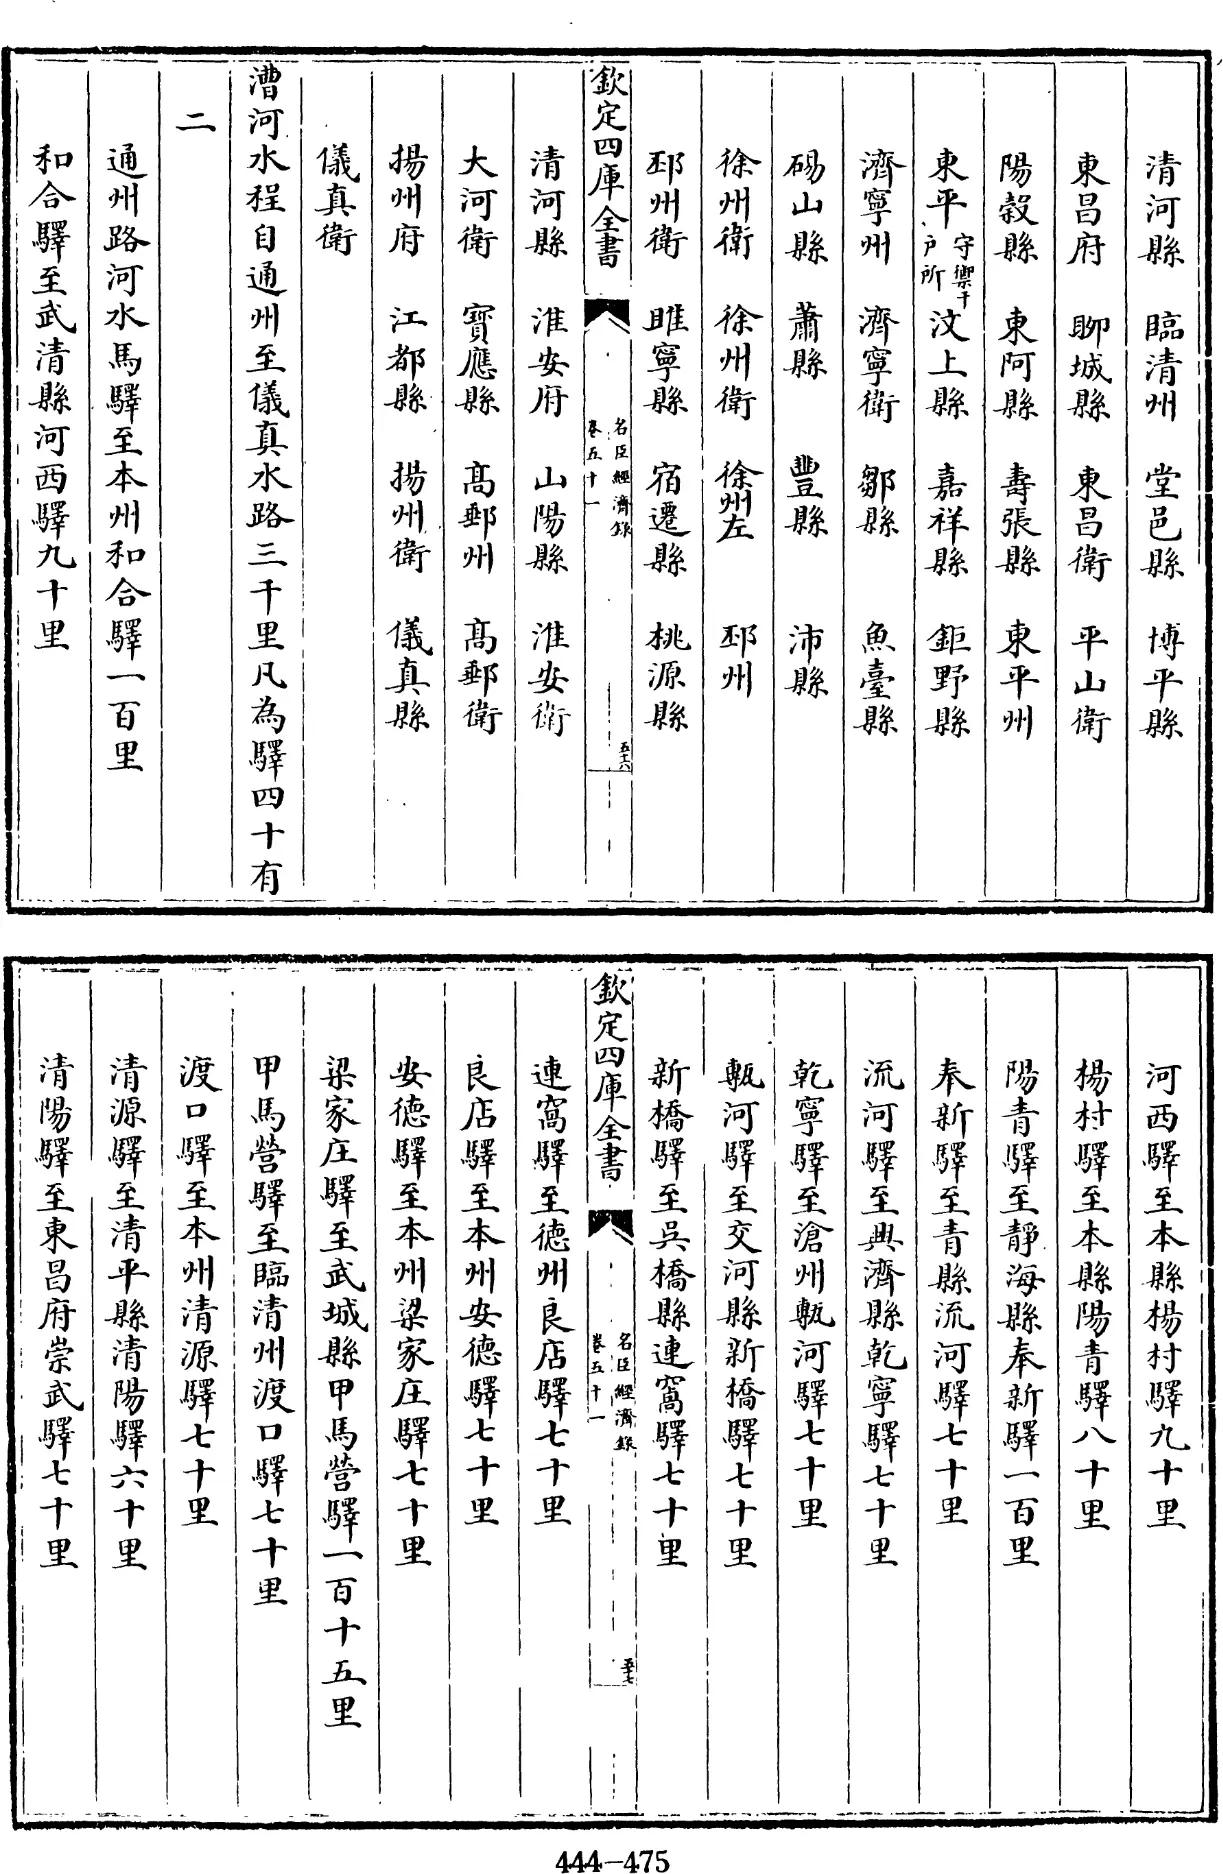 清河縣 臨清州 堂邑縣 博平縣
東昌府 聊城縣 東昌衛 平山衛
陽穀縣 東阿縣 壽張縣 東平州
東平守禦千戶所 汶上縣 嘉祥縣 鉅野縣
濟寧州 濟寧衛 鄒縣 魚臺縣
碭山縣 蕭縣 豐縣 沛縣
徐州衛 徐州衛 徐州左 邳州
邳州衛 睢寧縣 宿遷縣 桃源縣
欽定四庫全書 名臣經濟錄 卷五十一 五十六
清河縣 淮安府 山陽縣 淮安衛
大河衛 寶應縣 高郵州 高郵衛
揚州府 江都縣 揚州衛 儀真縣
儀真衛
漕河水程自通州至儀真水路三千里凡為驛四十有
二
通州路河水馬驛至本州和合驛一百里
和合驛至武清縣河西驛九十里
河西驛至本縣楊村驛九十里
楊村驛至本縣陽青驛八十里
陽青驛至靜海縣奉新驛一百里
奉新驛至青縣流河驛七十里
流河驛至興濟縣乾寧驛七十里
乾寧驛至滄州甎河驛七十里
甎河驛至交河縣新橋驛七十里
新橋驛至吳橋縣連窩驛七十里
欽定四庫全書 名臣經濟錄 卷五十一 五十七
連窩驛至德州良店驛七十里
良店驛至本州安德驛七十里
安德驛至本州梁家庄驛七十里
梁家庄驛至武城縣甲馬營驛一百十五里
甲馬營驛至臨清州渡口驛七十里
渡口驛至本州清源驛七十里
清源驛至清平縣清陽驛六十里
清陽驛至東昌府崇武驛七十里
444-475